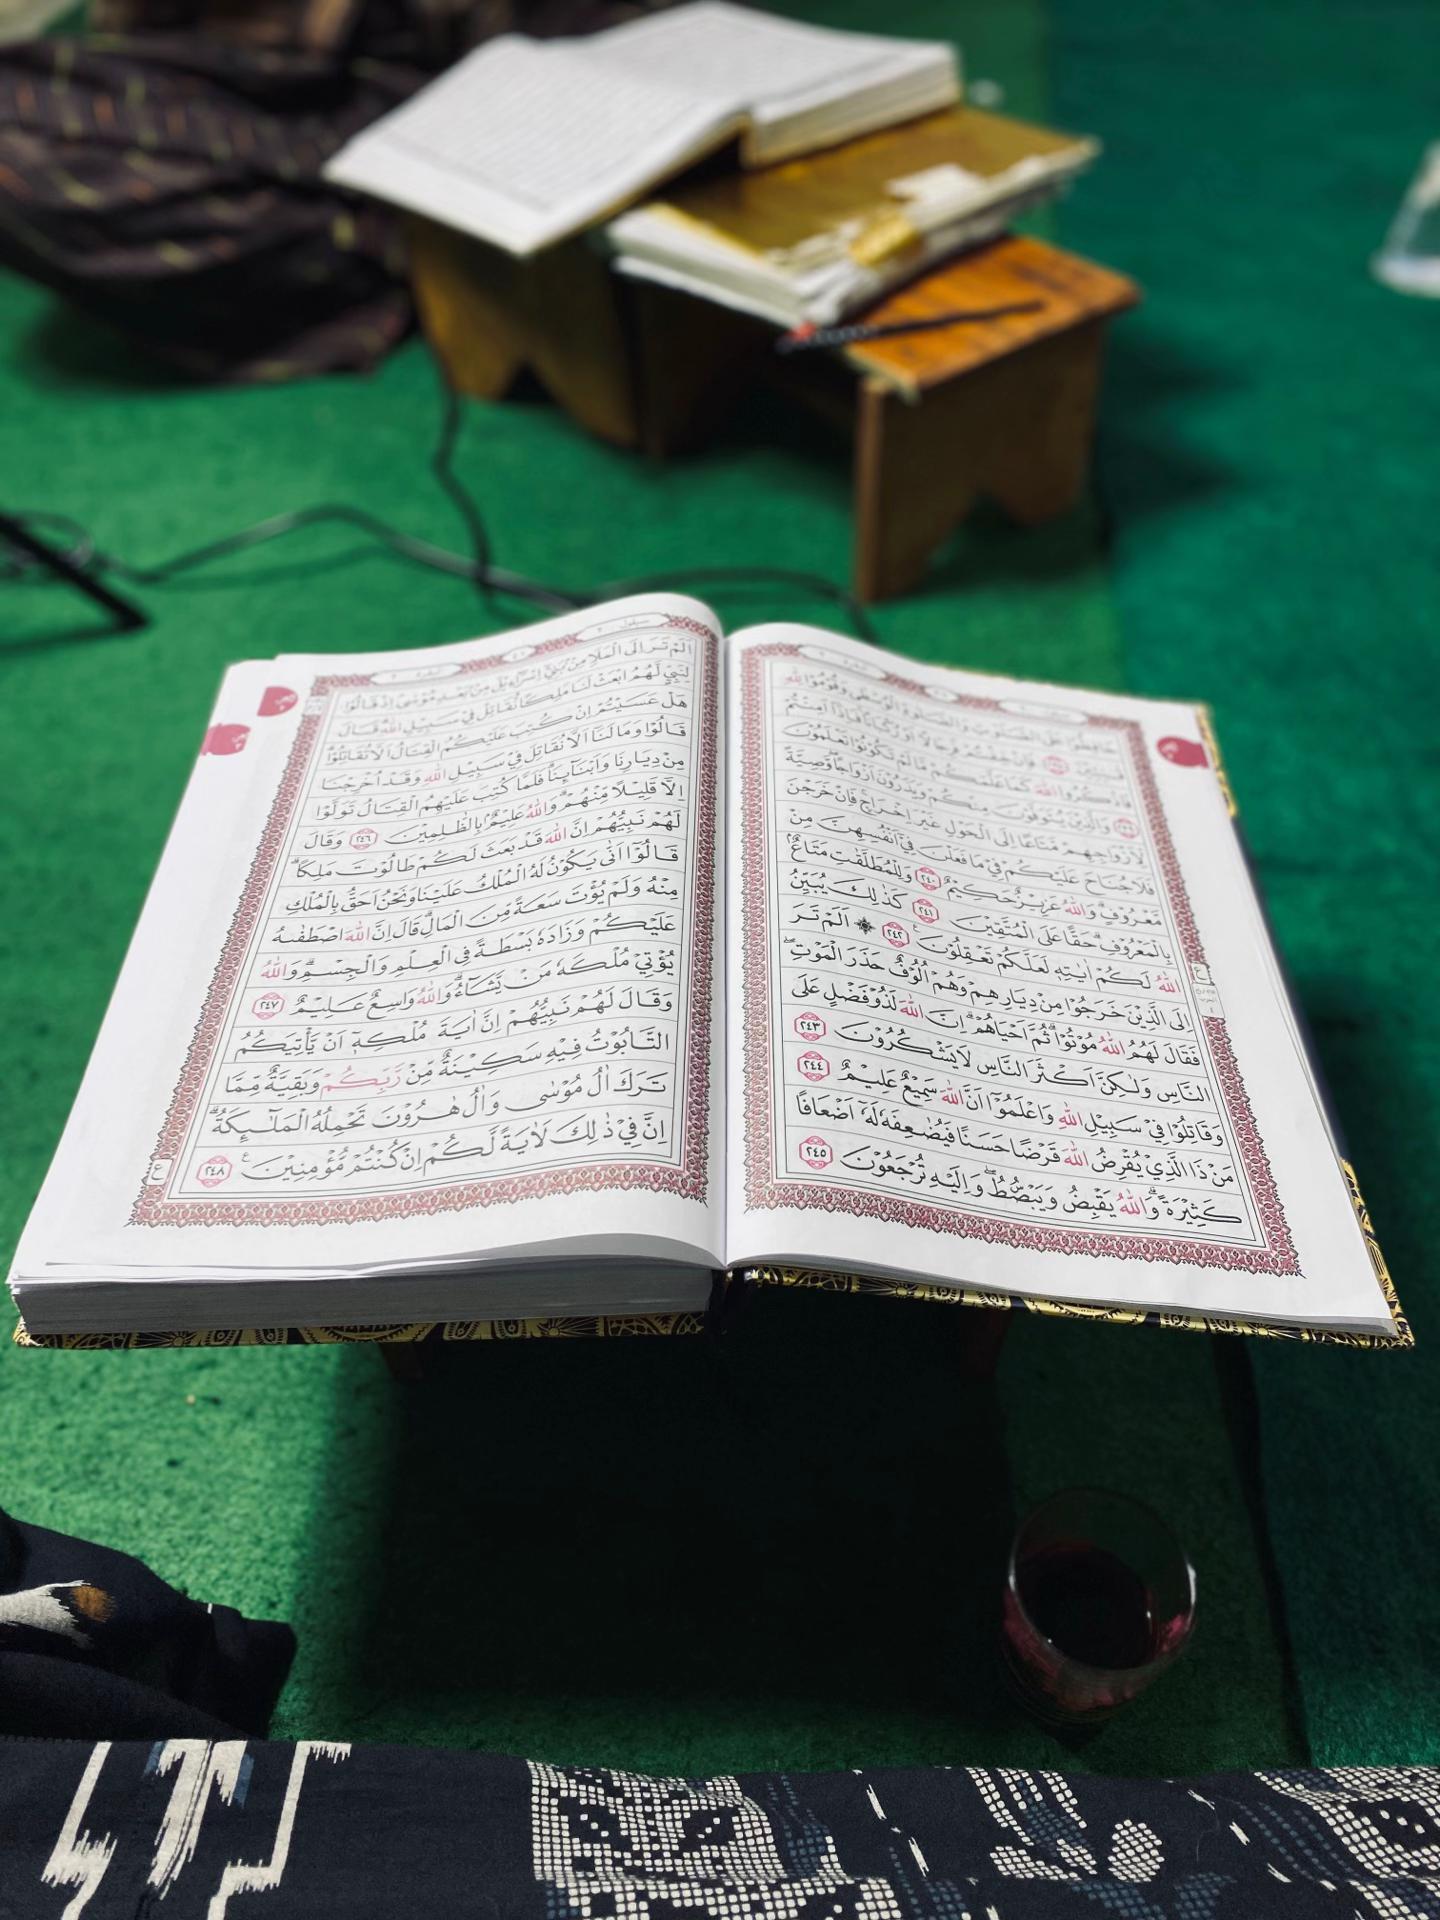 حَافِظُوْا عَلَى الصَّلَوٰتِ وَالصَّلٰوةِ الْوُسْطٰى وَقُوْمُوْا لِلّٰهِ
فَاِنْ خِفْتُمْ فَرِجَالًا اَوْ رُكْبَانًا فَاِذَآ اَمِنْتُمْ
فَاذْكُرُوا اللّٰهَ كَمَا عَلَّمَكُمْ مَّا لَمْ تَكُوْنُوْا تَعْلَمُوْنَ
٢٣٩ وَالَّذِيْنَ يُتَوَفَّوْنَ مِنْكُمْ وَيَذَرُوْنَ اَزْوَاجًاۖ وَّصِيَّةً
لِّاَزْوَاجِهِمْ مَّتَاعًا اِلَى الْحَوْلِ غَيْرَ اِخْرَاجٍۚ فَاِنْ خَرَجْنَ
فَلَا جُنَاحَ عَلَيْكُمْ فِيْ مَا فَعَلْنَ فِيْٓ اَنْفُسِهِنَّ مِنْ
مَّعْرُوْفٍۗ وَاللّٰهُ عَزِيْزٌ حَكِيْمٌ ٢٤٠ وَلِلْمُطَلَّقٰتِ مَتَاعٌۢ
بِالْمَعْرُوْفِۗ حَقًّا عَلَى الْمُتَّقِيْنَ ٢٤١ كَذٰلِكَ يُبَيِّنُ
اللّٰهُ لَكُمْ اٰيٰتِهٖ لَعَلَّكُمْ تَعْقِلُوْنَ ࣖ ٢٤٢ ۞ اَلَمْ تَرَ
اِلَى الَّذِيْنَ خَرَجُوْا مِنْ دِيَارِهِمْ وَهُمْ اُلُوْفٌ حَذَرَ الْمَوْتِۖ
فَقَالَ لَهُمُ اللّٰهُ مُوْتُوْاۗ ثُمَّ اَحْيَاهُمْۗ اِنَّ اللّٰهَ لَذُوْ فَضْلٍ عَلَى
النَّاسِ وَلٰكِنَّ اَكْثَرَ النَّاسِ لَا يَشْكُرُوْنَ ٢٤٣
وَقَاتِلُوْا فِيْ سَبِيْلِ اللّٰهِ وَاعْلَمُوْٓا اَنَّ اللّٰهَ سَمِيْعٌ عَلِيْمٌ ٢٤٤
مَنْ ذَا الَّذِيْ يُقْرِضُ اللّٰهَ قَرْضًا حَسَنًا فَيُضٰعِفَهٗ لَهٗٓ اَضْعَافًا
كَثِيْرَةًۗ وَاللّٰهُ يَقْبِضُ وَيَبْصُۣطُۖ وَاِلَيْهِ تُرْجَعُوْنَ ٢٤٥
سيقول ٢
اَلَمْ تَرَ اِلَى الْمَلَاِ مِنْۢ بَنِيْٓ اِسْرَاۤءِيْلَ مِنْۢ بَعْدِ مُوْسٰىۘ اِذْ قَالُوْا
لِنَبِيٍّ لَّهُمُ ابْعَثْ لَنَا مَلِكًا نُّقَاتِلْ فِيْ سَبِيْلِ اللّٰهِۗ قَالَ
هَلْ عَسَيْتُمْ اِنْ كُتِبَ عَلَيْكُمُ الْقِتَالُ اَلَّا تُقَاتِلُوْاۗ
قَالُوْا وَمَا لَنَآ اَلَّا نُقَاتِلَ فِيْ سَبِيْلِ اللّٰهِ وَقَدْ اُخْرِجْنَا
مِنْ دِيَارِنَا وَاَبْنَاۤىِٕنَاۗ فَلَمَّا كُتِبَ عَلَيْهِمُ الْقِتَالُ تَوَلَّوْا
اِلَّا قَلِيْلًا مِّنْهُمْۗ وَاللّٰهُ عَلِيْمٌۢ بِالظّٰلِمِيْنَ ٢٤٦ وَقَالَ
لَهُمْ نَبِيُّهُمْ اِنَّ اللّٰهَ قَدْ بَعَثَ لَكُمْ طَالُوْتَ مَلِكًاۗ
قَالُوْٓا اَنّٰى يَكُوْنُ لَهُ الْمُلْكُ عَلَيْنَا وَنَحْنُ اَحَقُّ بِالْمُلْكِ
مِنْهُ وَلَمْ يُؤْتَ سَعَةً مِّنَ الْمَالِۗ قَالَ اِنَّ اللّٰهَ اصْطَفٰىهُ
عَلَيْكُمْ وَزَادَهٗ بَسْطَةً فِى الْعِلْمِ وَالْجِسْمِۗ وَاللّٰهُ
يُؤْتِيْ مُلْكَهٗ مَنْ يَّشَاۤءُۗ وَاللّٰهُ وَاسِعٌ عَلِيْمٌ ٢٤٧
وَقَالَ لَهُمْ نَبِيُّهُمْ اِنَّ اٰيَةَ مُلْكِهٖٓ اَنْ يَّأْتِيَكُمُ
التَّابُوْتُ فِيْهِ سَكِيْنَةٌ مِّنْ رَّبِّكُمْ وَبَقِيَّةٌ مِّمَّا
تَرَكَ اٰلُ مُوْسٰى وَاٰلُ هٰرُوْنَ تَحْمِلُهُ الْمَلٰۤىِٕكَةُۗ
اِنَّ فِيْ ذٰلِكَ لَاٰيَةً لَّكُمْ اِنْ كُنْتُمْ مُّؤْمِنِيْنَ ࣖ ٢٤٨
ع